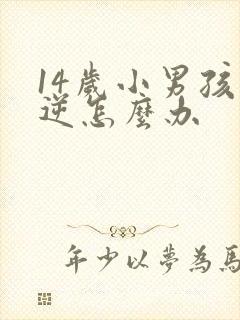 14歲小男孩
逆怎麼办
年少以夢為馬